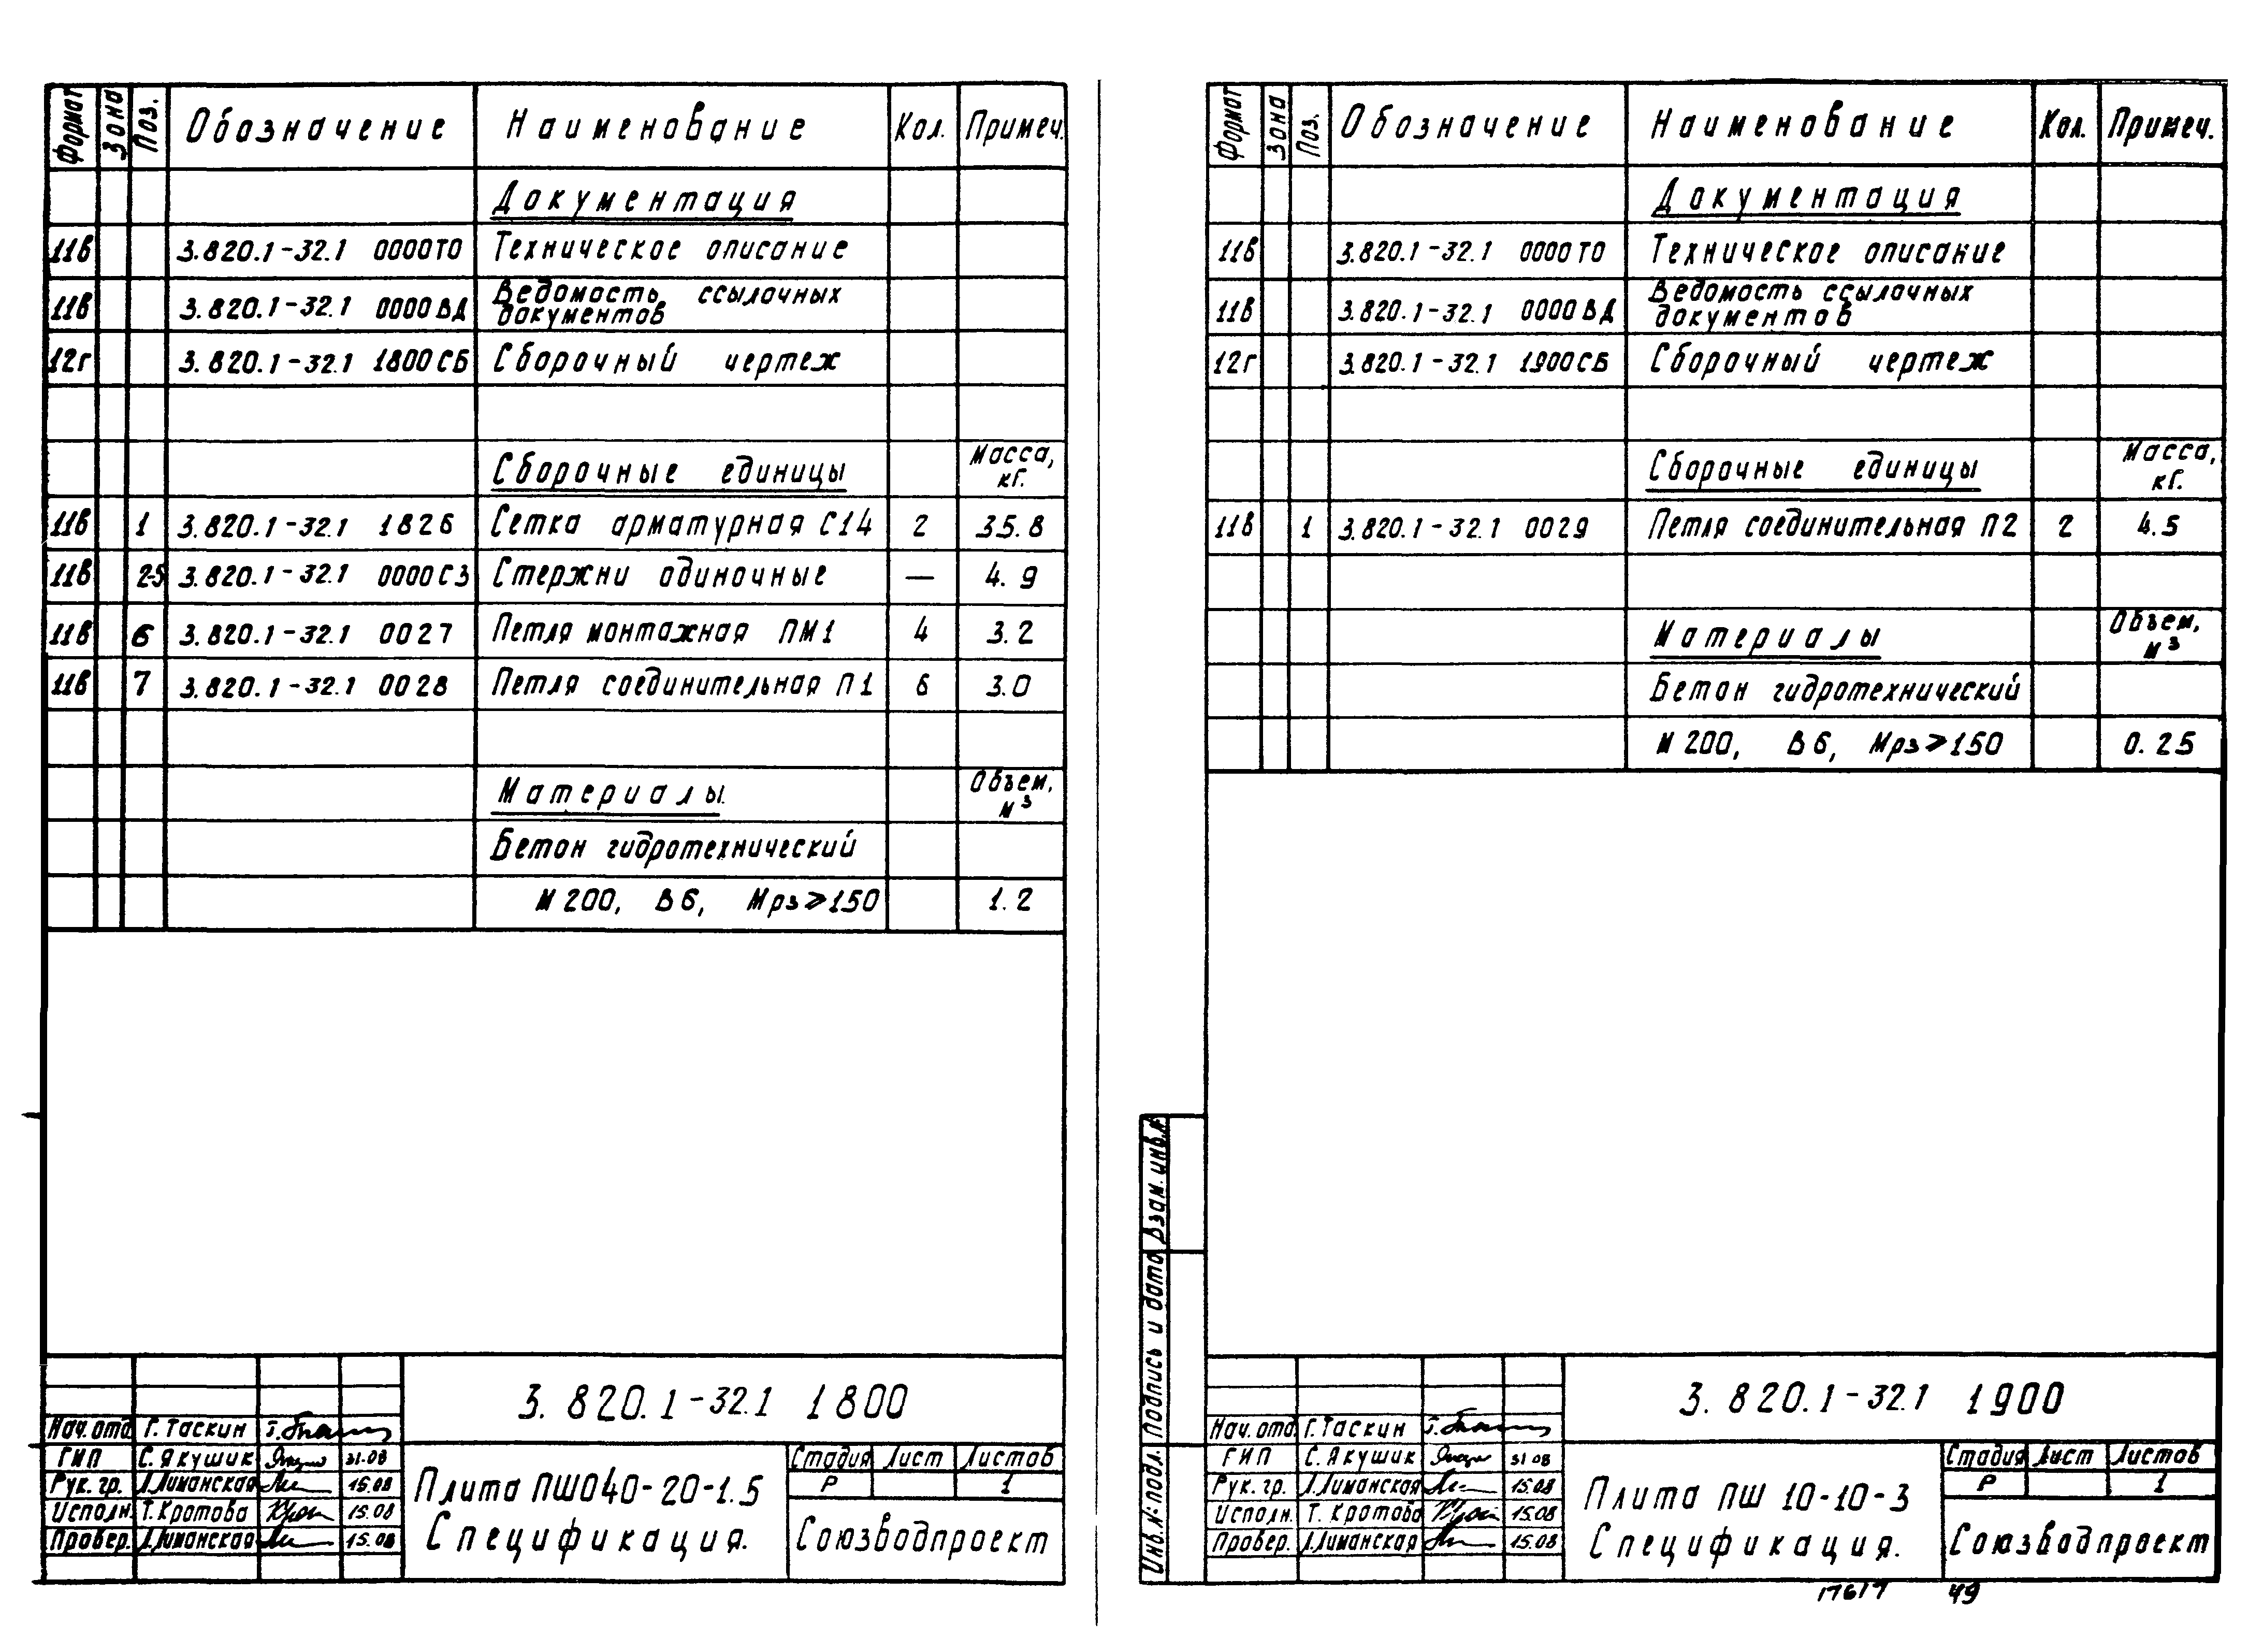 Формат Зона Поз. Обозначение Наименование Кол. Примеч.
Документация
11в 3.820.1-32.1 0000ТО Техническое описание
11в 3.820.1-32.1 0000ВД Ведомость ссылочных
документов
12г 3.820.1-32.1 1800СБ Сборочный чертеж
Сборочные единицы Масса,
кг.
11в 1 3.820.1-32.1 1826 Сетка арматурная С14 2 35.8
11в 2-5 3.820.1-32.1 0000СЗ Стержни одиночные — 4.9
11в 6 3.820.1-32.1 0027 Петля монтажная ПМ1 4 3.2
11в 7 3.820.1-32.1 0028 Петля соединительная П1 6 3.0
Материалы Объем,
м³
Бетон гидротехнический
М200, В6, Мрз⩾150 1.2
3.820.1-32.1 1800
Нач. отд. Г. Таскин
ГИП С. Якушик 31.08
Рук. гр. Л. Лиманская 15.08
Исполн. Т. Кротова 15.08
Провер. Л. Лиманская 15.08
Плита ПШО40-20-1.5
Спецификация.
Стадия Лист Листов
Р 1
Союзводпроект
Формат Зона Поз. Обозначение Наименование Кол. Примеч.
Документация
11в 3.820.1-32.1 0000ТО Техническое описание
11в 3.820.1-32.1 0000ВД Ведомость ссылочных
документов
12г 3.820.1-32.1 1900СБ Сборочный чертеж
Сборочные единицы Масса,
кг.
11в 1 3.820.1-32.1 0029 Петля соединительная П2 2 4.5
Материалы Объем,
м³
Бетон гидротехнический
М200, В6, Мрз⩾150 0.25
Взам. инв. №
Подпись и дата
Инв. № подл.
3.820.1-32.1 1900
Нач. отд. Г. Таскин
ГИП С. Якушик 31 08
Рук. гр. Л. Лиманская 15.08
Исполн. Т. Кротова 15.08
Провер. Л. Лиманская 15.08
Плита ПШ 10-10-3
Спецификация.
Стадия Лист Листов
Р 1
Союзводпроект
17617 49